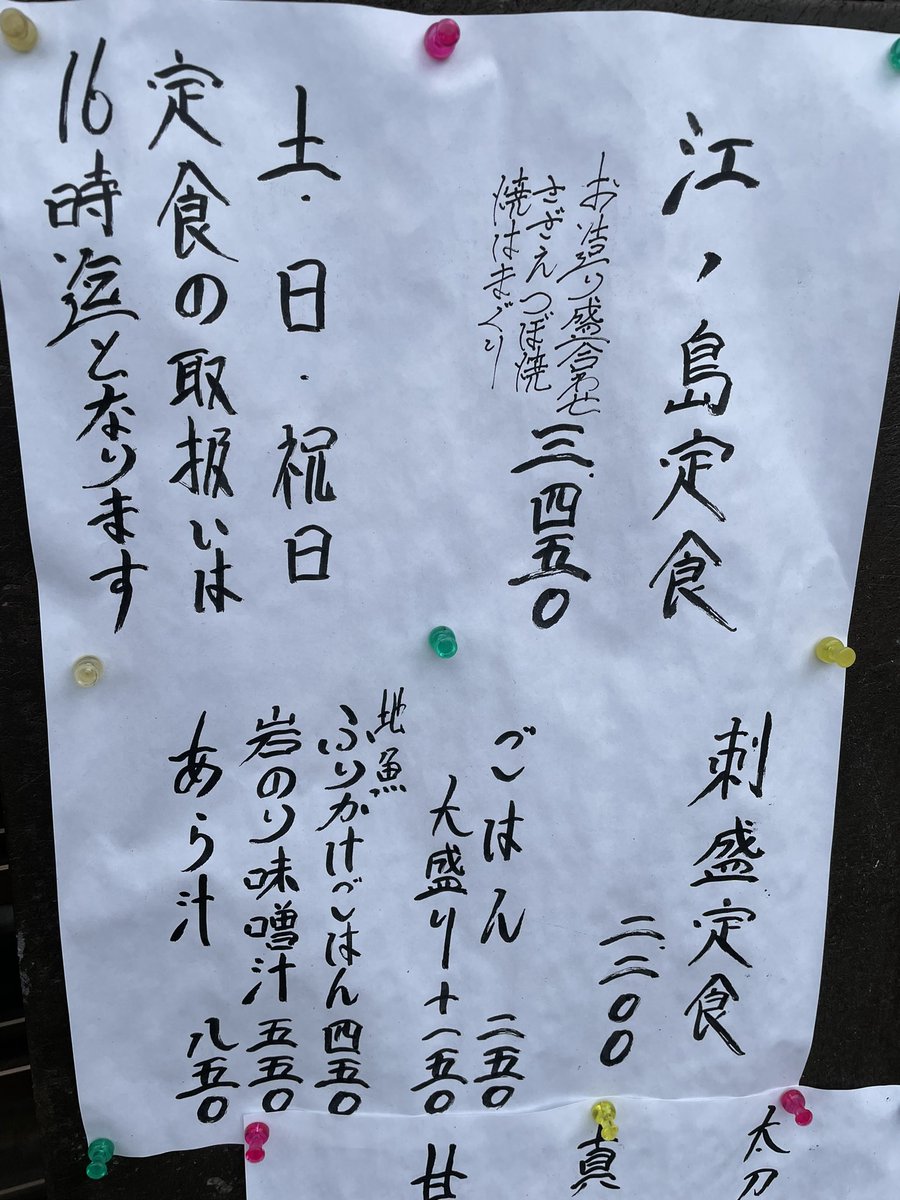 江ノ島定食
お造り盛合わせ
さざえつぼ焼
焼はまぐり
三.四五〇
土・日・祝日
定食の取扱いは
16時迄となります
刺盛定食
二.二〇〇
ごはん 二五〇
大盛り+一五〇
地魚
ふりかけごはん 四五〇
岩のり味噌汁 五五〇
あら汁 八五〇
太刀
真
甘